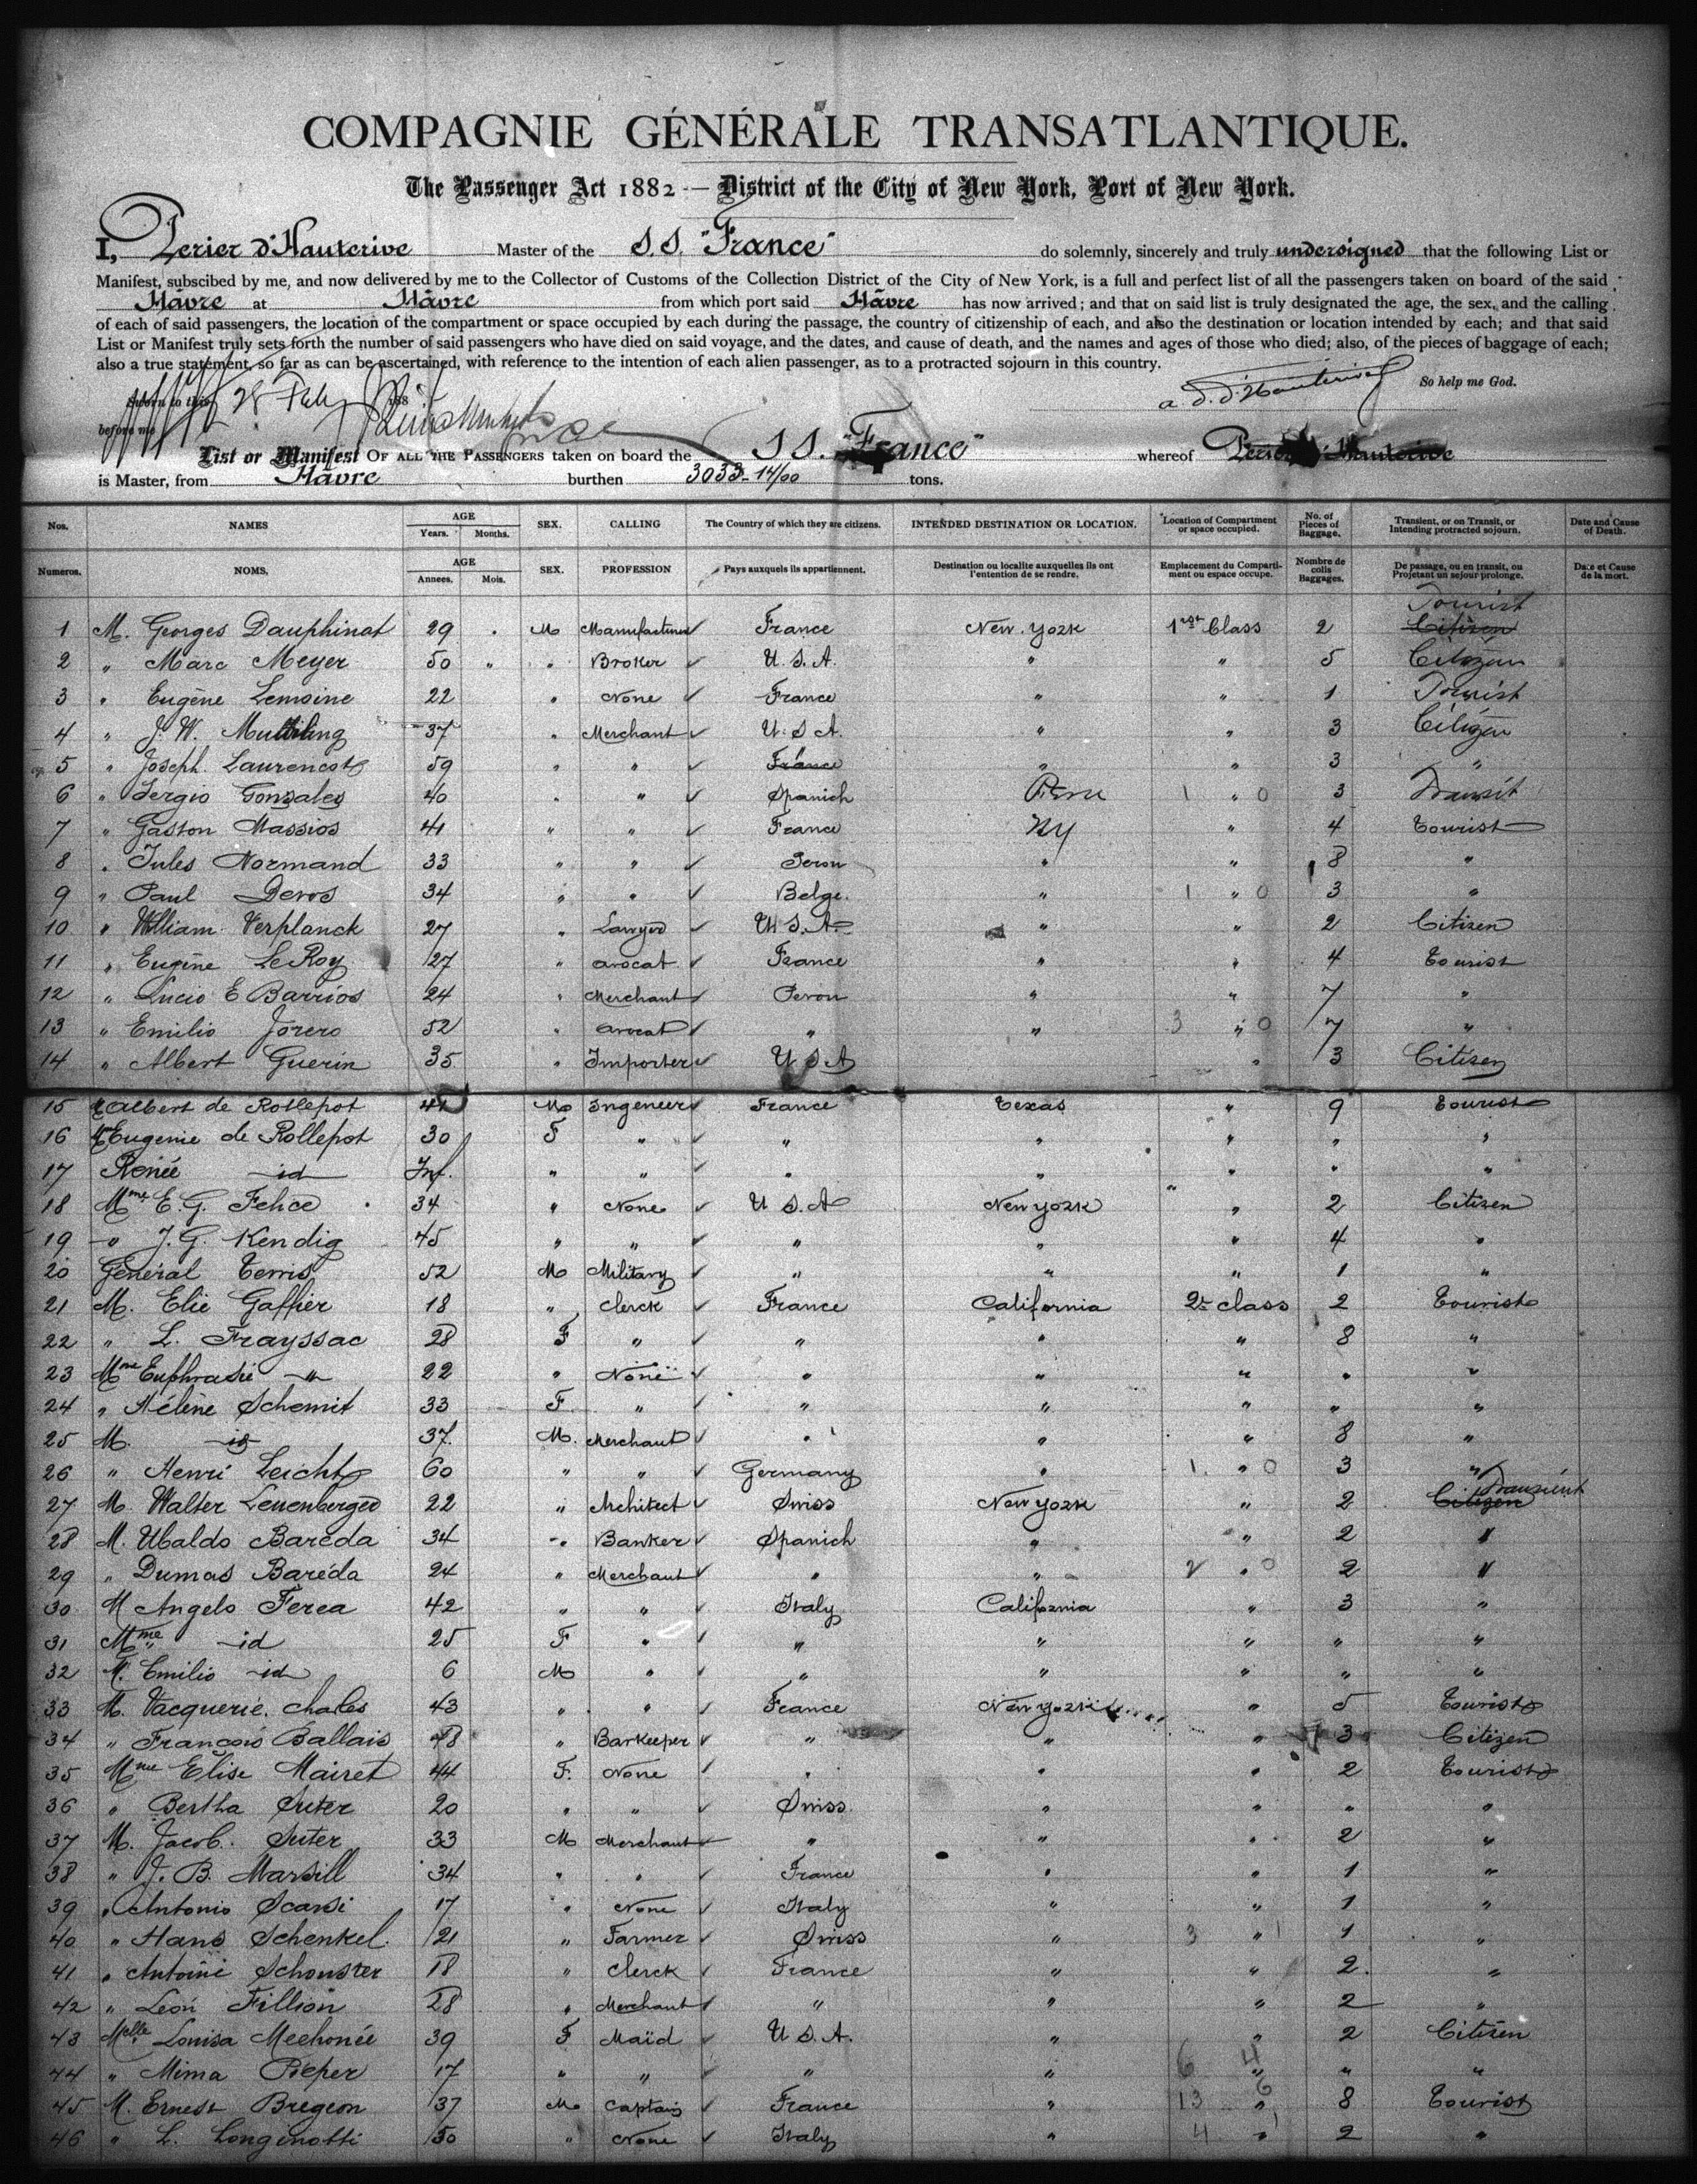 COMPAGNIE GÉNÉRALE TRANSATLANTIQUE.
The Passenger Act 1882 — District of the City of New York, Port of New York.
I, Perier d'Hauterive Master of the S.S. "France" do solemnly, sincerely and truly undersigned that the following List or
Manifest, subscibed by me, and now delivered by me to the Collector of Customs of the Collection District of the City of New York, is a full and perfect list of all the passengers taken on board of the said
Hâvre at Hâvre from which port said Hâvre has now arrived; and that on said list is truly designated the age, the sex, and the calling
of each of said passengers, the location of the compartment or space occupied by each during the passage, the country of citizenship of each, and also the destination or location intended by each; and that said
List or Manifest truly sets forth the number of said passengers who have died on said voyage, and the dates, and cause of death, and the names and ages of those who died; also, of the pieces of baggage of each;
also a true statement, so far as can be ascertained, with reference to the intention of each alien passenger, as to a protracted sojourn in this country.
So help me God.
a d. d'Hauterive
Sworn to this 28 Feb 188
before me
List or Manifest OF ALL THE PASSENGERS taken on board the SS. "France" whereof Perier d'Hauterive
is Master, from Hâvre burthen 3033-14/00 tons.
Nos. NAMES AGE Years. Months. SEX. CALLING The Country of which they are citizens. INTENDED DESTINATION OR LOCATION. Location of Compartment or space occupied. No. of Pieces of Baggage. Transient, or on Transit, or Intending protracted sojourn. Date and Cause of Death.
Numeros. NOMS. AGE Annees. Mois. SEX. PROFESSION Pays auxquels ils appartiennent. Destination ou localite auxquelles ils ont l'entention de se rendre. Emplacement du Compartiment ou espace occupe. Nombre de colis Baggages. De passage, ou en transit, ou Projetant un sejour prolonge. Date et Cause de la mort.
Tourist
1 M. Georges Dauphinat 29 " M Manufacturer France New-York 1st Class 2 Citizen
2 " Marc Meyer 50 " " Broker U.S.A. " " 5 Citizen
3 " Eugène Lemoine 22 " None France " " 1 Tourist
4 " J. W. 37 " Merchant U.S.A. " " 3 Citizen
5 " Joseph Laurencot 59 " " France " " 3 "
6 " Sergio Gonzales 40 " " Spanich Peru 1 " 0 3 Transit
7 " Gaston Massios 41 " " France NY " 4 tourist
8 " Jules Normand 33 " " Perou " " 8 "
9 " Paul Devos 34 " " Belge. " 1 " 0 3 "
10 " William Verplanck 27 " Lawyer U.S.A. " " 2 Citizen
11 " Eugène LeRoy 27 " avocat France " " 4 tourist
12 " Lucio E Barrios 24 " Merchant Perou " " 7 "
13 " Emilio Forero 52 " avocat " " 3 " 0 7 "
14 " Albert Guerin 35 " Importer U S A " 3 Citizen
15 Albert de Rollepot 41 M Ingeneer France texas " 9 tourist
16 Eugenie de Rollepot 30 F " " " " " "
17 Renée id Inf. " " " " " " "
18 Mme E. G. Felice 34 " None U S. A New york " 2 Citizen
19 " J. G. Kendig 45 " " " " " 4 "
20 General Terris 52 M Military " " " 1 "
21 M. Elie Gaffier 18 " clerck France California 2e class 2 tourist
22 " L. Frayssac 28 F " " " " 8 "
23 Mme Euphrasie " 22 " None " " " " "
24 " Hélène Schemit 33 F. " " " " " "
25 M. id 37. M. Merchant " " " 8 "
26 " Henri Leicht 60 " " Germany " 1. " 0 3 "
27 M. Walter Leuenberger 22 " Architect Swiss New york " 2 Citizen Transient
28 M. Ubaldo Baréda 34 " Banker Spanich " " 2 "
29 " Dumas Baréda 24 " Merchant " " 2 " 0 2 "
30 M Angelo Ferea 42 " " Italy California " 3 "
31 Mme " id 25 F " " " " " "
32 M. Emilio id 6 M " " " " " "
33 M. Vacquerie. chales 43 " " France New york " 5 tourist
34 " François Ballais 48 " Barkeeper " " " 3 Citizen
35 Mme Elise Mairet 44 F. None " " " 2 tourist
36 " Bertha Suter 20 " " Swiss " " " "
37 M. Jacob. Suter 33 M Merchant " " " 2 "
38 " J. B. Marsill 34 " " France " " 1 "
39 " Antonio Scarsi 17 " None Italy " " 1 "
40 " Hans Schenkel. 21 " Farmer Swiss " 3 " 1 1 "
41 " Antoine Schouster 18 " clerck France " " 2. "
42 " Léon Fillion 28 " Merchant " " " 2 "
43 Melle Louisa Mechonée 39 F Maïd U S. A. " " 2 Citizen
44 " Mima Pieper 17 " " " " 6 " 4 " "
45 M. Ernest Bregeon 37 M Captain France " 13 " 6 8 tourist
46 " L. Longinotti 50 " None Italy " 4 " 1 2 "